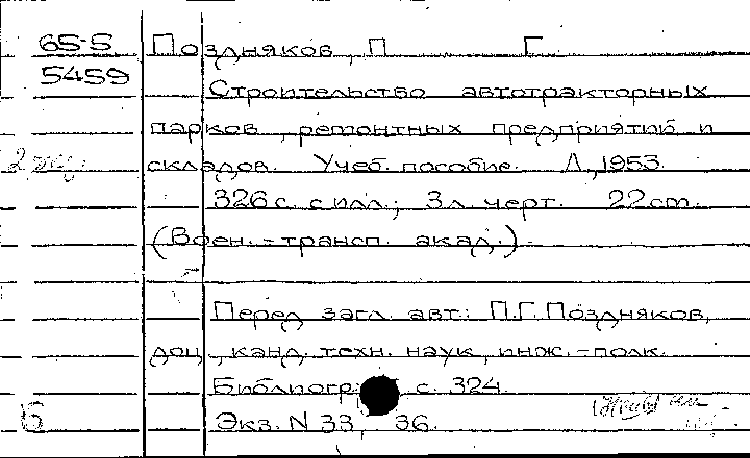 65-5 Поздняков, П. Г.
5459
Строительство автотракторных
парков, ремонтных предприятий и
2 экз складов. Учеб. пособие. Л., 1953.
326 с. с илл.; 3 л. черт. 22 cm.
(Воен.-трансп. акад.).
Перед загл. авт.: П.Г. Поздняков,
доц., канд. техн. наук, инж.-полк.
Библиогр. с. 324.
Б Экз. N 33, 36.